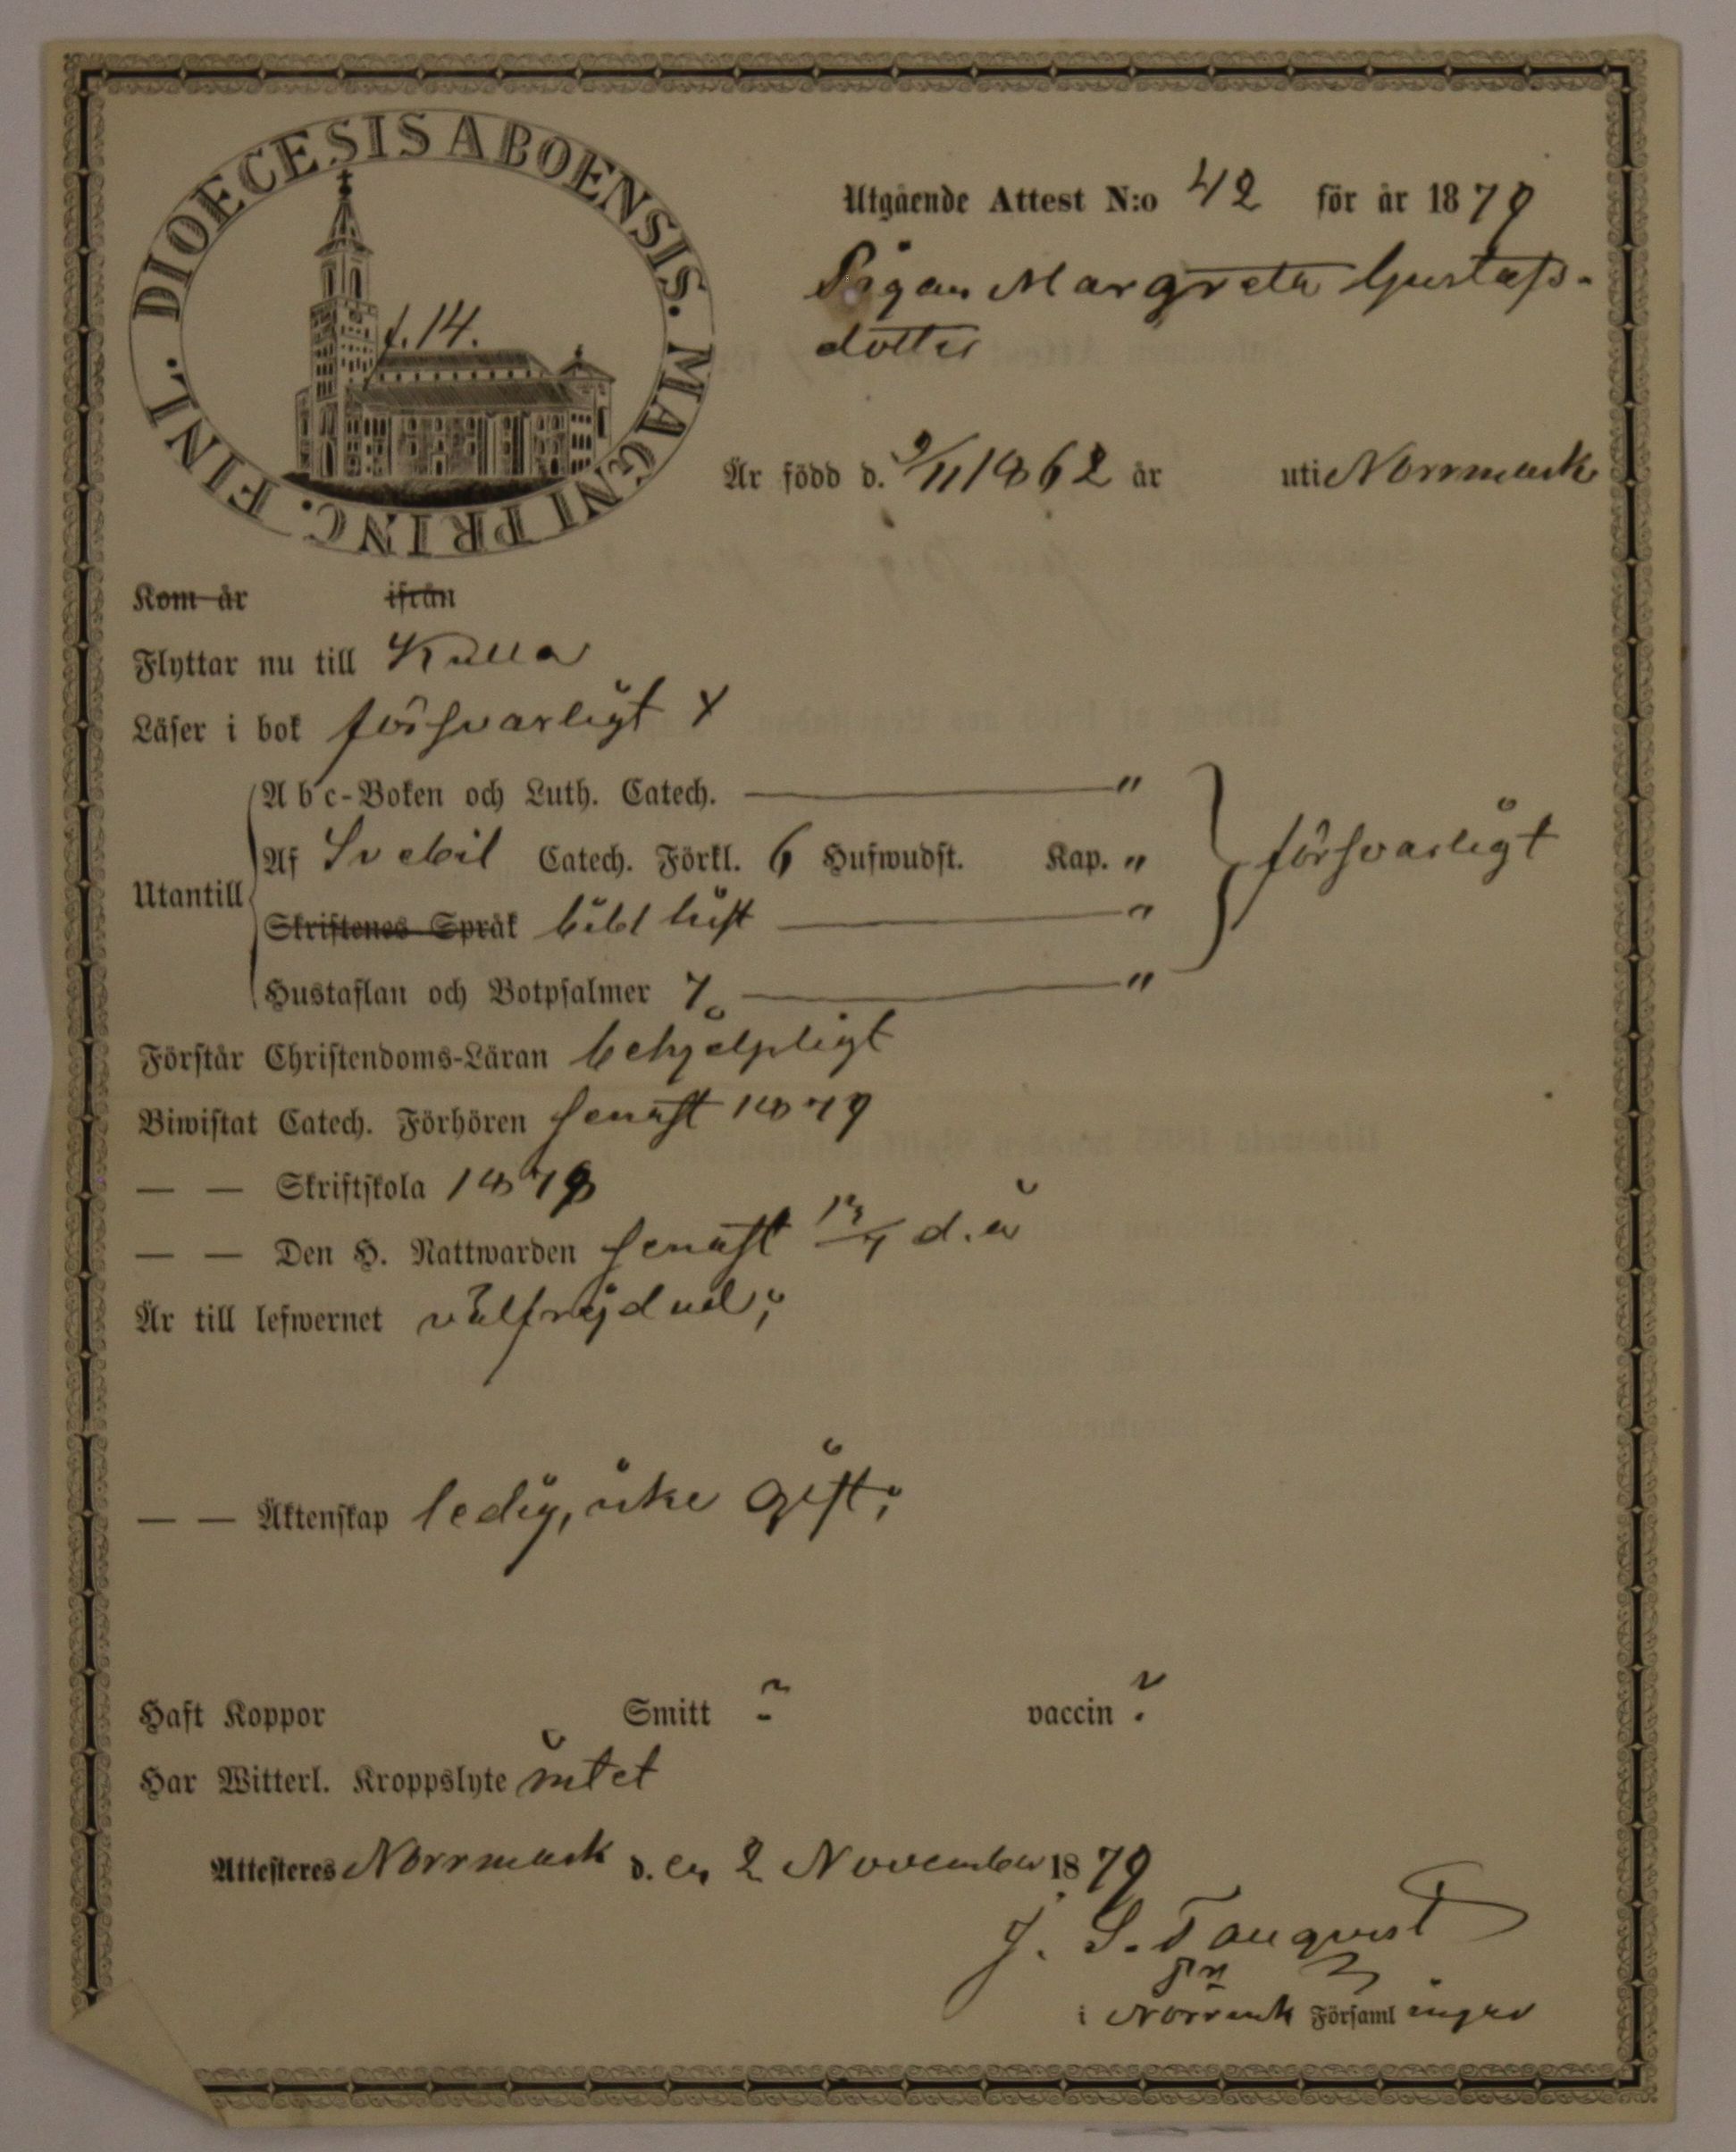 DIOECESIS ABOENSIS. MAGNI PRINC. FINL.
f. 14.
Utgående Attest N:o 42 för år 1879
Pigan Margreta Gustafs-
dotter
Är född d. 9/11 1862 år uti Norrmark
Kom år ifrån
Flyttar nu till Kulla
Läser i bok försvarligt x
Utantill
Abc-Boken och Luth. Catech. "
Af Svebil Catech. Förkl. 6 Hufwudst. Kap. "
Skriftenes Språk bibl hist "
försvarligt
Hustaflan och Botpsalmer 7. "
Förstår Christendoms-Läran behjelpligt
Biwistat Catech. Förhören senast 1879
— — Skriftskola 1878
— — Den H. Nattwarden senast d. å
Är till lefwernet välfrejdad;
— — Äktenskap ledig, icke gift;
Haft Koppor Smitt ? vaccin ?
Har Witterl. Kroppslyte intet
Attesteres Norrmark d. en 2 November 1879
J. S. Tanqvist
i Norrmrk Församlingen